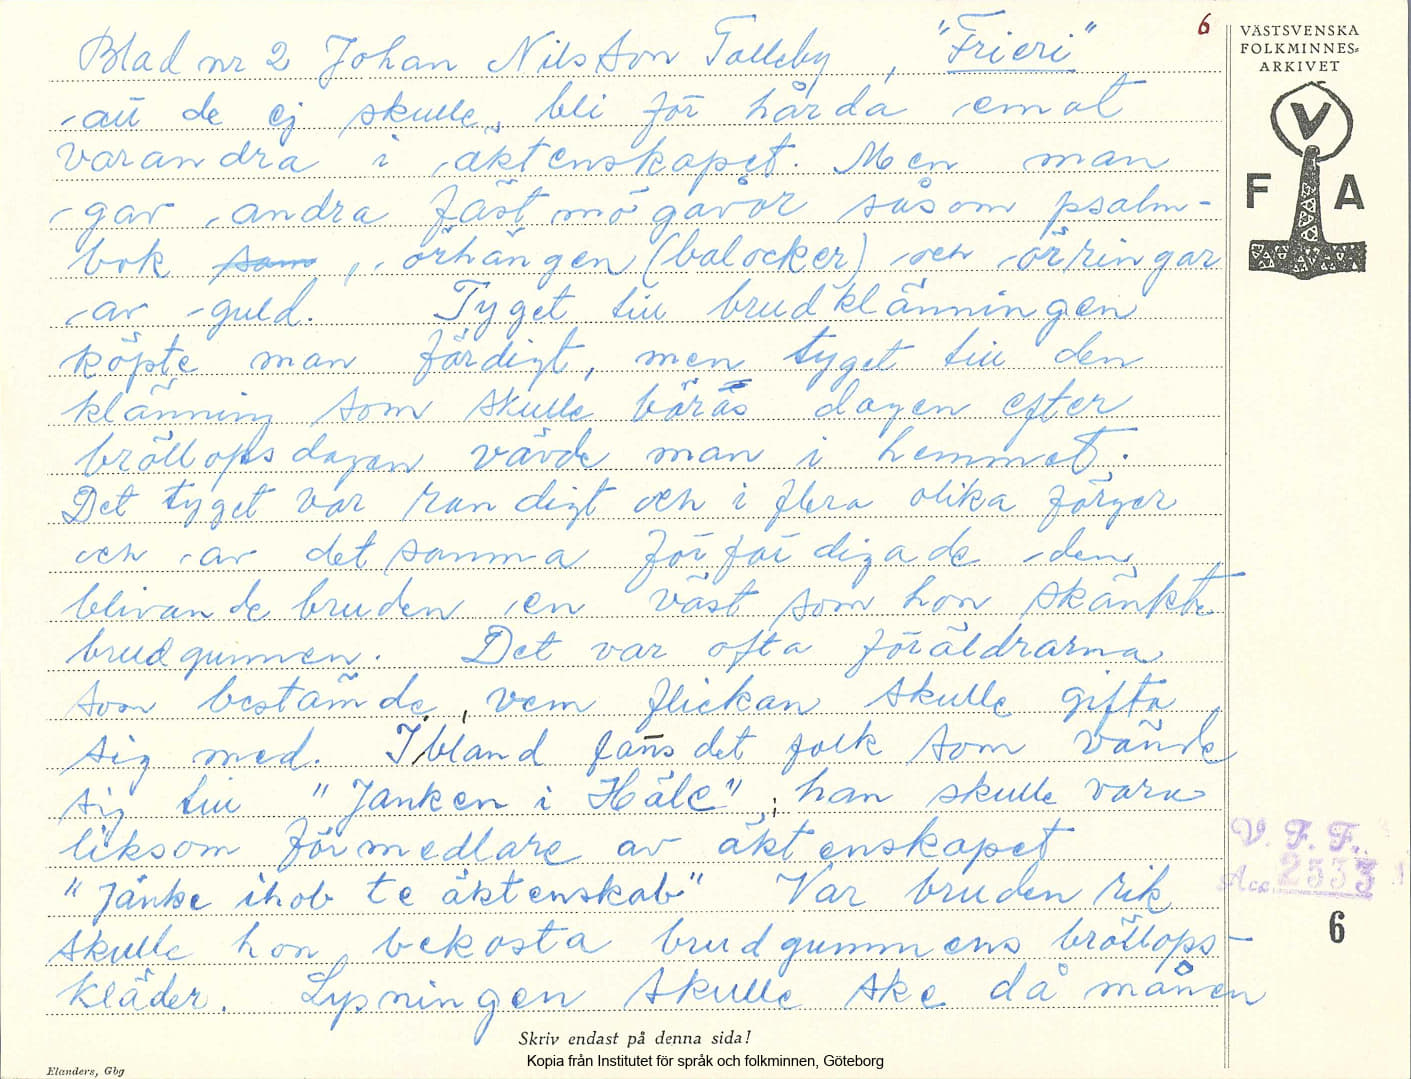 6
Blad nr 2 Johan Nilsson Tolleby, "Frieri"
VÄSTSVENSKA
FOLKMINNES-
ARKIVET
V
F A
att de ej skulle bli för hårda emot
varandra i äktenskapet. Men man
gav andra fästmögåvor såsom psalm-
bok som, örhängen (balocker) och örringar
av guld. Tyget till brudklänningen
köpte man färdigt, men tyget till den
klänning som skulle bäras dagen efter
bröllopsdagen vävde man i hemmet.
Det tyget var randigt och i flera olika färger
och av det samma förfärdigade den
blivande bruden en väst som hon skänkte
brudgummen. Det var ofta föräldrarna
som bestämde, vem flickan skulle gifta
sig med. Ibland fans det folk som vände
sig till "Janken i Häle"; han skulle vara
liksom förmedlare av äktenskapet
"Jänke ihob te äktenskab" Var bruden rik
skulle hon bekosta brudgummens bröllops-
kläder. Lysningen skulle ske då månen
V. F. F.
Acc. 2533
6
Skriv endast på denna sida!
Kopia från Institutet för språk och folkminnen, Göteborg
Elanders, Gbg